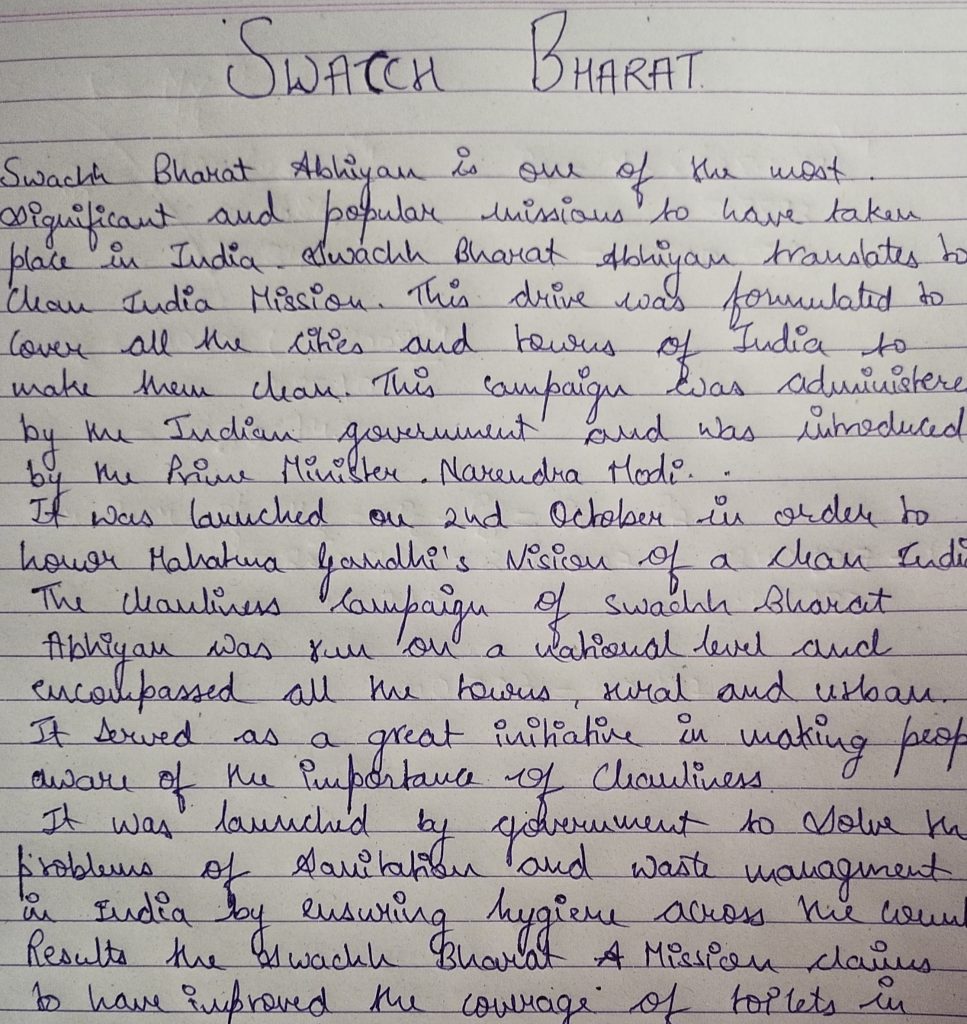 SWATCH BHARAT.
Swachh Bharat Abhiyan is one of the most.
significant and popular missions to have taken
place in India. Swachh Bharat Abhiyan translates to
Clean India Mission. This drive was formulated to
Cover all the cities and towns of India to
make them clean. This campaign was administere
by the Indian government and was introduced
by the Prime Minister. Narendra Modi..
It was launched on 2nd October in order to
honor Mahatma Gandhi's Vision of a clean Indi
The cleanliness campaign of swachh Bharat
Abhiyan was run on a national level and
encompassed all the towns, rural and urban.
It served as a great initiative in making peop
aware of the importance of Cleanliness
It was launched by government to solve th
problems of sanitation and waste managment
in India by ensuring hygiene across the count
Results the swachh Bharat A Mission claims
to have improved the courage of toilets in